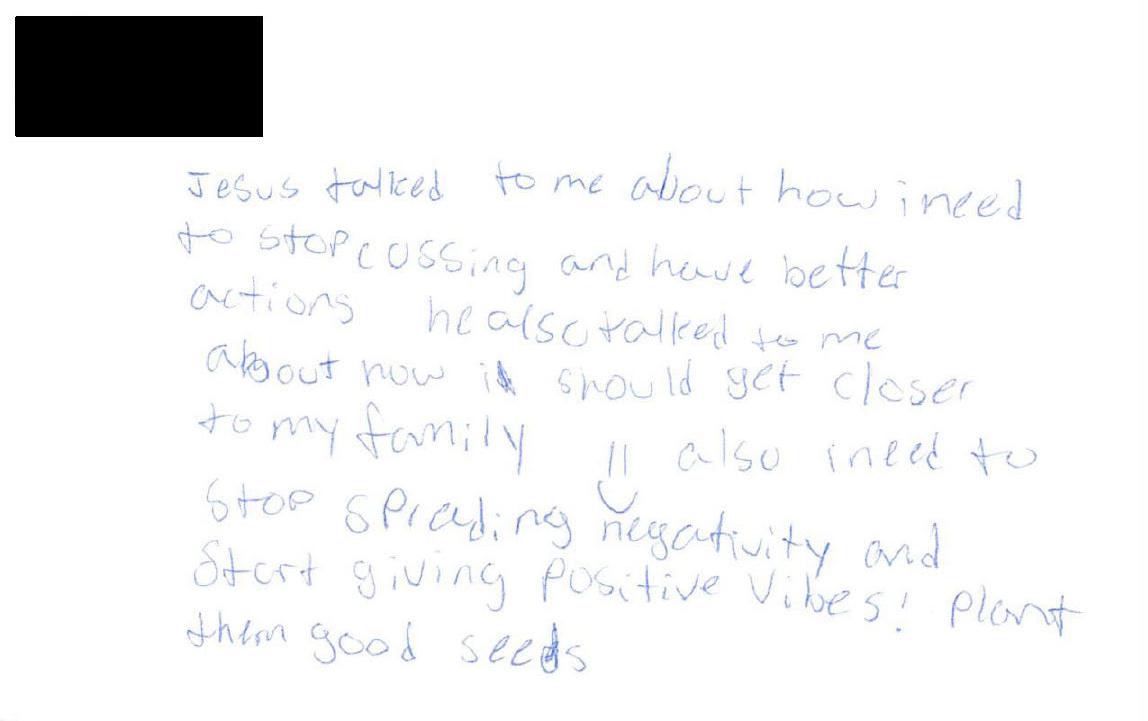 Jesus talked to me about how i need
to stop cussing and have better
actions he also talked to me
about how i should get closer
to my family also i need to
stop spreading negativity and
Start giving positive vibes! Plant
them good seeds